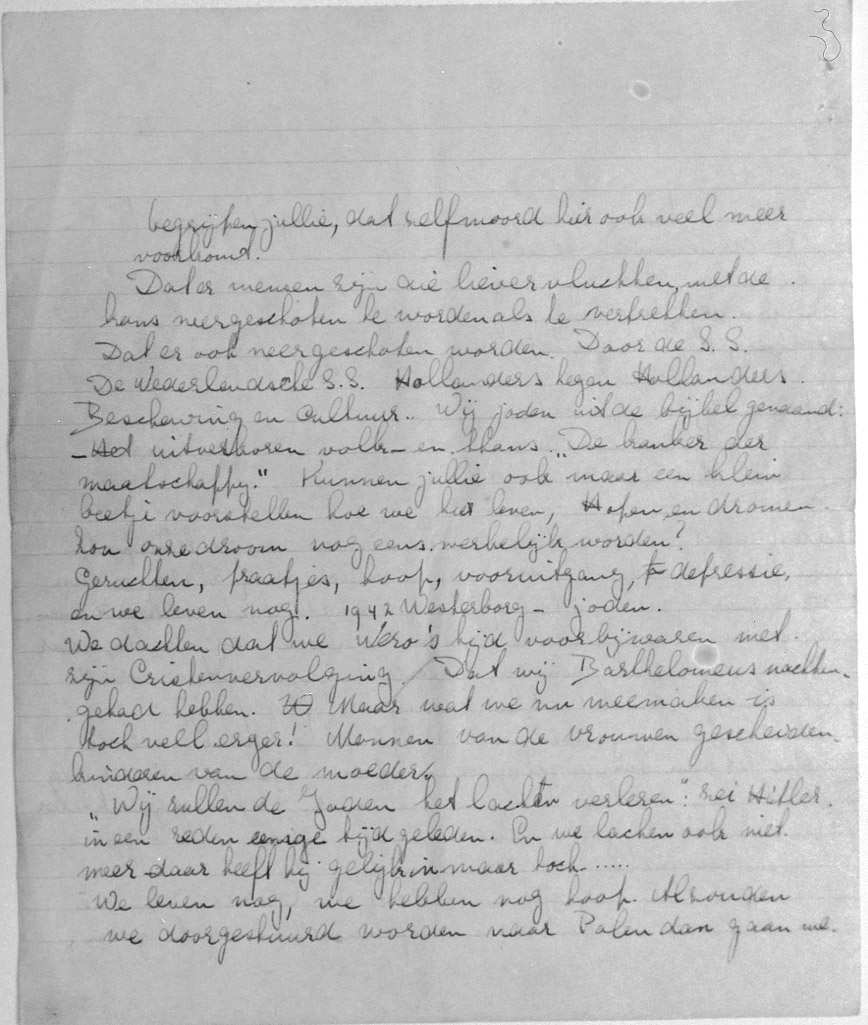 3
begrijpen jullie, dat zelfmoord hier ook veel meer
voorkomt.
Dat er mensen zijn die liever vluchten, met de
kans neergeschoten te worden als te vertrekken.
Dat er ook neergeschoten worden. Door de S.S.
De Nederlandsche S.S. Hollanders tegen Hollanders.
Beschawing en Cultuur.. Wij joden uit de bijbel genaamd:
- Het uitverkoren volk - en thans „De kanker der
maatschappij." Kunnen jullie ook maar een klein
beetje voorstellen hoe we hier leven, Hopen, en dromen.
Zou onze droom nog eens werkelijk worden?
Geruchten, praatjes, hoop, vooruitgang, depressie,
en we leven nog. 1942 Westerborg - joden.
We dachten dat we Nero's tijd voorbij waren met
zijn Cristenvervolging. Dat wij Barthelomeus nachten
gehad hebben. Maar wat we nu meemaken is
toch vell erger! Mannen van de vrouwen gescheiden,
kinderen van de moeder.
„Wij zullen de Joden het lachen verleren": zei Hitler.
in een reden eenige tijd geleden. En we lachen ook niet
meer daar heeft hij gelijk in maar toch......
We leven nog, we hebben nog hoop. Al zouden
we doorgestuurd worden naar Polen dan gaan we.